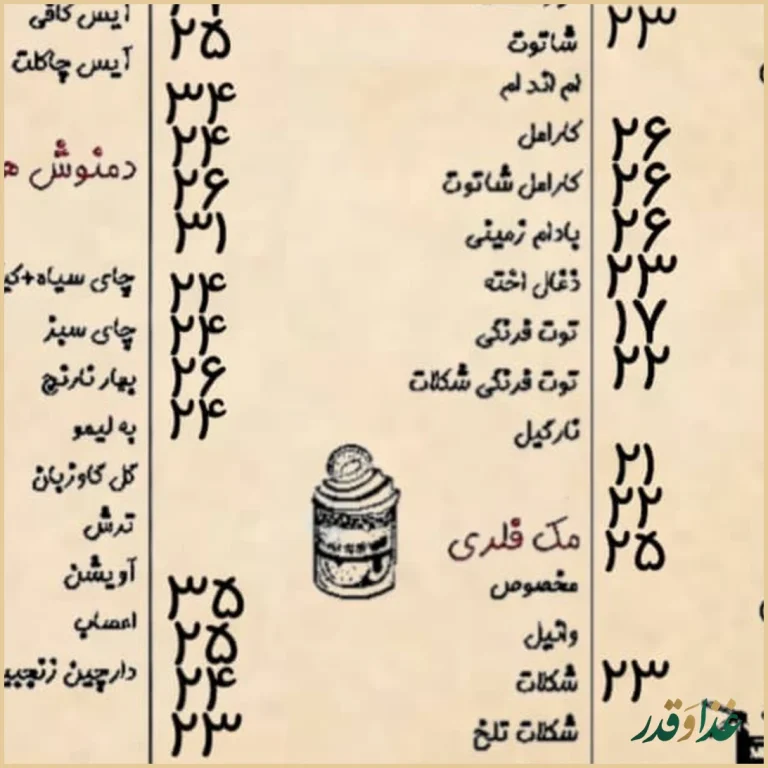 ۲۳
شاتوت
ام اند ام
کارامل
کارامل شاتوت
بادام زمینی
ذغال اخته
توت فرنگی
توت فرنگی شکلات
نارگیل
۲۶
۲۶
۲۶
۲۳
۱۷
۲۲
۲۱
۲۲
۲۵
۲۳
مک فلری
مخصوص
وانیل
شکلات
شکلات تلخ
۲۵
۳۴
۲۴
۲۶
۳۱
۲۴
۲۴
۲۶
۲۴
۳۵
۲۵
۲۴
۲۳
آیس کافی
آیس چاکلت
دمنوش
چای سیاه+
چای سبز
بهار نارنج
به لیمو
گل گاوزبان
ترش
آویشن
اعصاب
دارچین
غذا و قدر